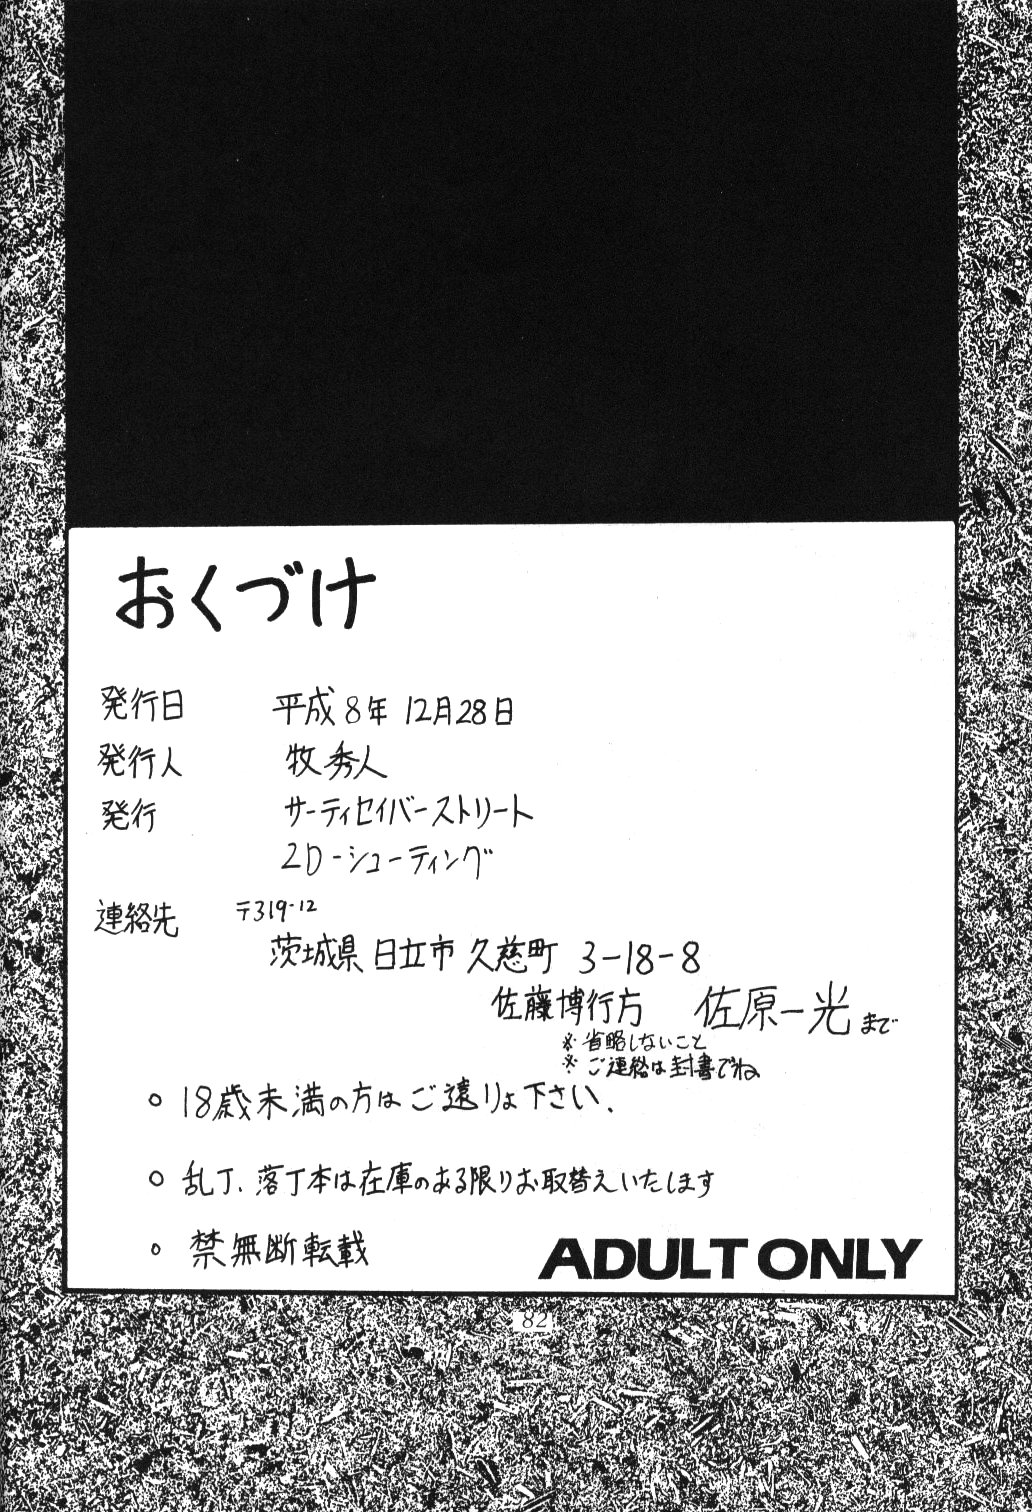 おくづけ
発行日 平成8年 12月28日
発行人 牧秀人
発行 サーティセイバーストリート
2D-シューティング
連絡先 〒319-12
茨城県 日立市 久慈町 3-18-8
佐藤博行方 佐原一光まで
※省略しないこと
※ご連絡は封書でね
○ 18歳未満の方はご遠りょ下さい.
○ 乱丁、落丁本は在庫のある限りお取替えいたします
○ 禁無断転載
ADULT ONLY
82